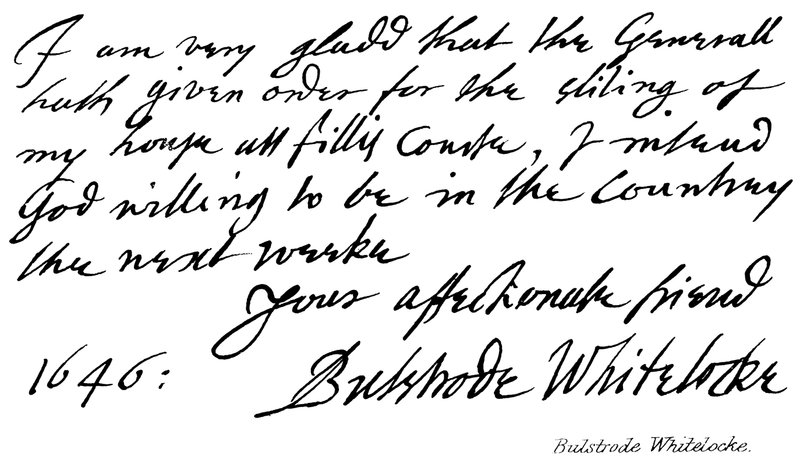 I am very gladd that the Generall
hath given order for the sliting of
my house att fillis Courte, I intend
God willing to be in the Countrey
the next weeke
Your affectionate friend
1646:
Bulstrode Whitelocke
Bulstrode Whitelocke.